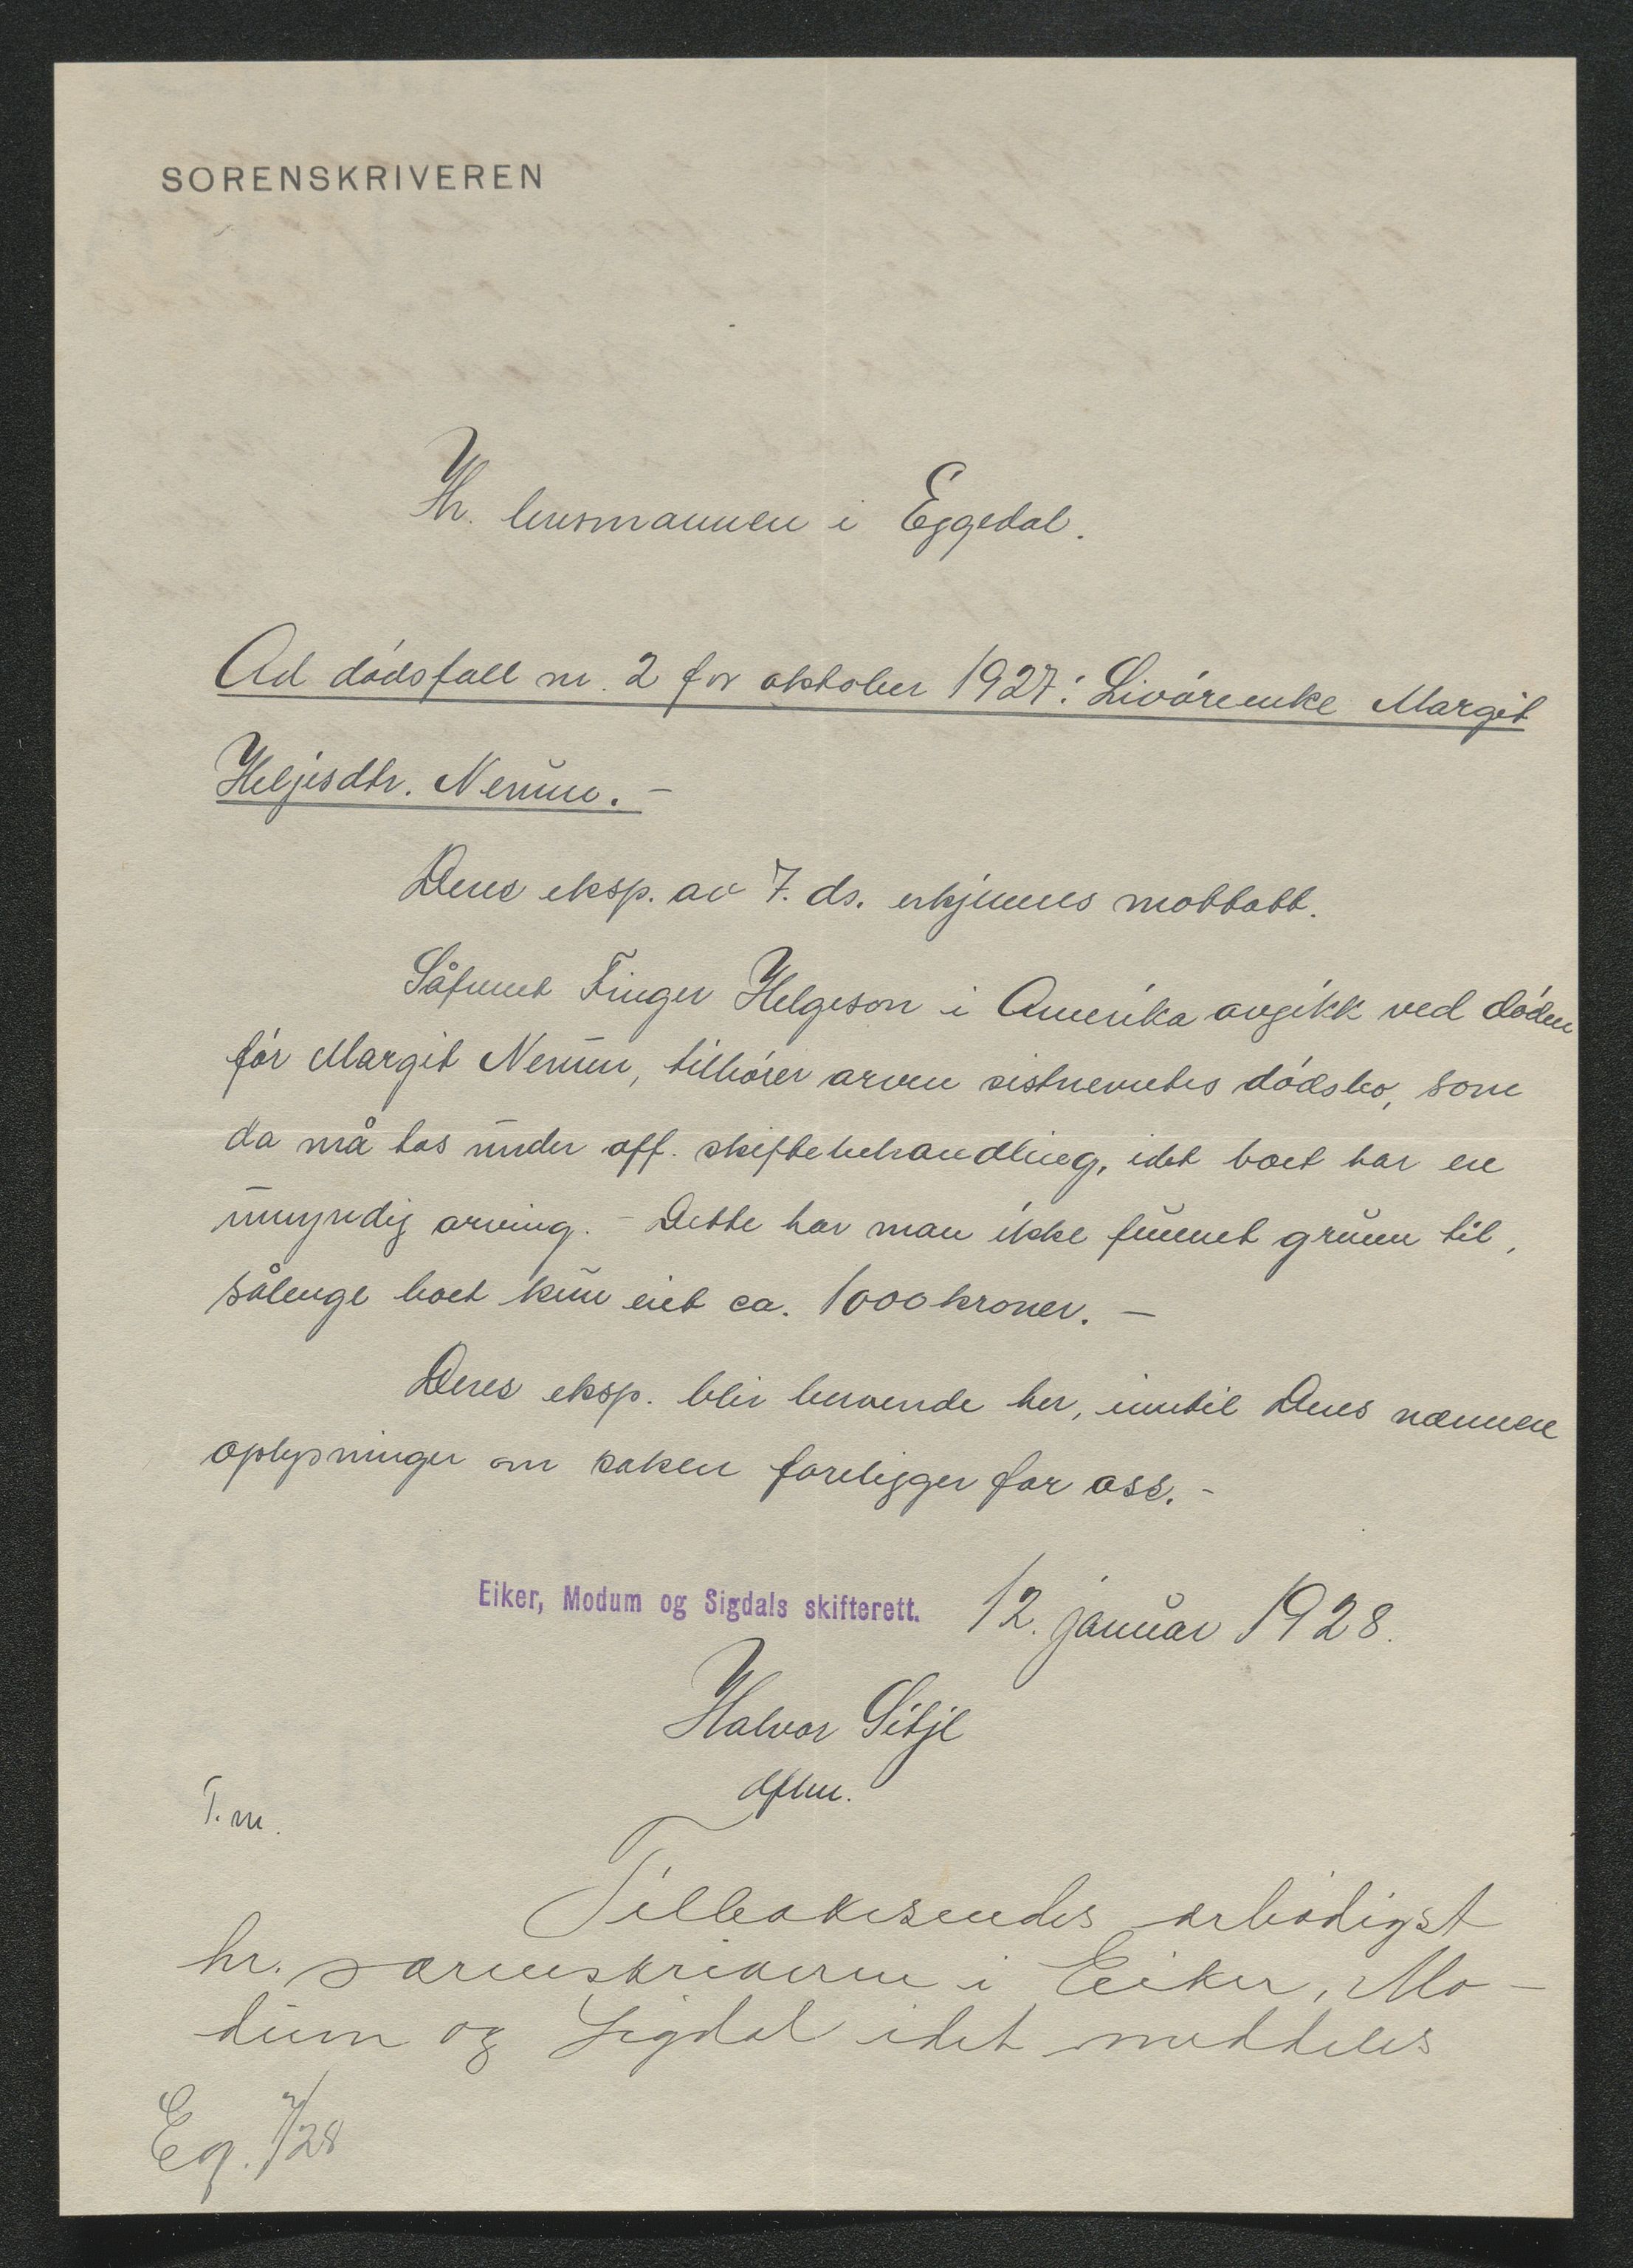 SORENSKRIVEREN
Hr. lensmannen i Eggedal.
Ad dødsfall nr. 2 for oktober 1927: Livørenke Margit
Heljesdtr. Nerum. –
Deres eksp. av 7. ds. erkjennes mottatt.
Såfremt Finger Helgeson i Amerika avgikk ved døden
før Margit Nerum, tilhører arven sistnevntes dødsbo, som
da må tas under off. skiftebehandling, idet boet har en
umyndig arving. – Dette har man ikke funnet grunn til,
sålenge boet kun eiet ca. 1000 kroner. –
Deres eksp. blir beroende her, inntil Deres nærmere
oplysninger om saken foreligger for oss. –
Eiker, Modum og Sigdals skifterett. 12. januar 1928.
Halvor Sitje
dfm.
T. m.
Tilbakesendes ærbødigst
hr. sorenskriveren i Eiker, Mo-
dum og Sigdal idet meddeles
Eq. 7/28